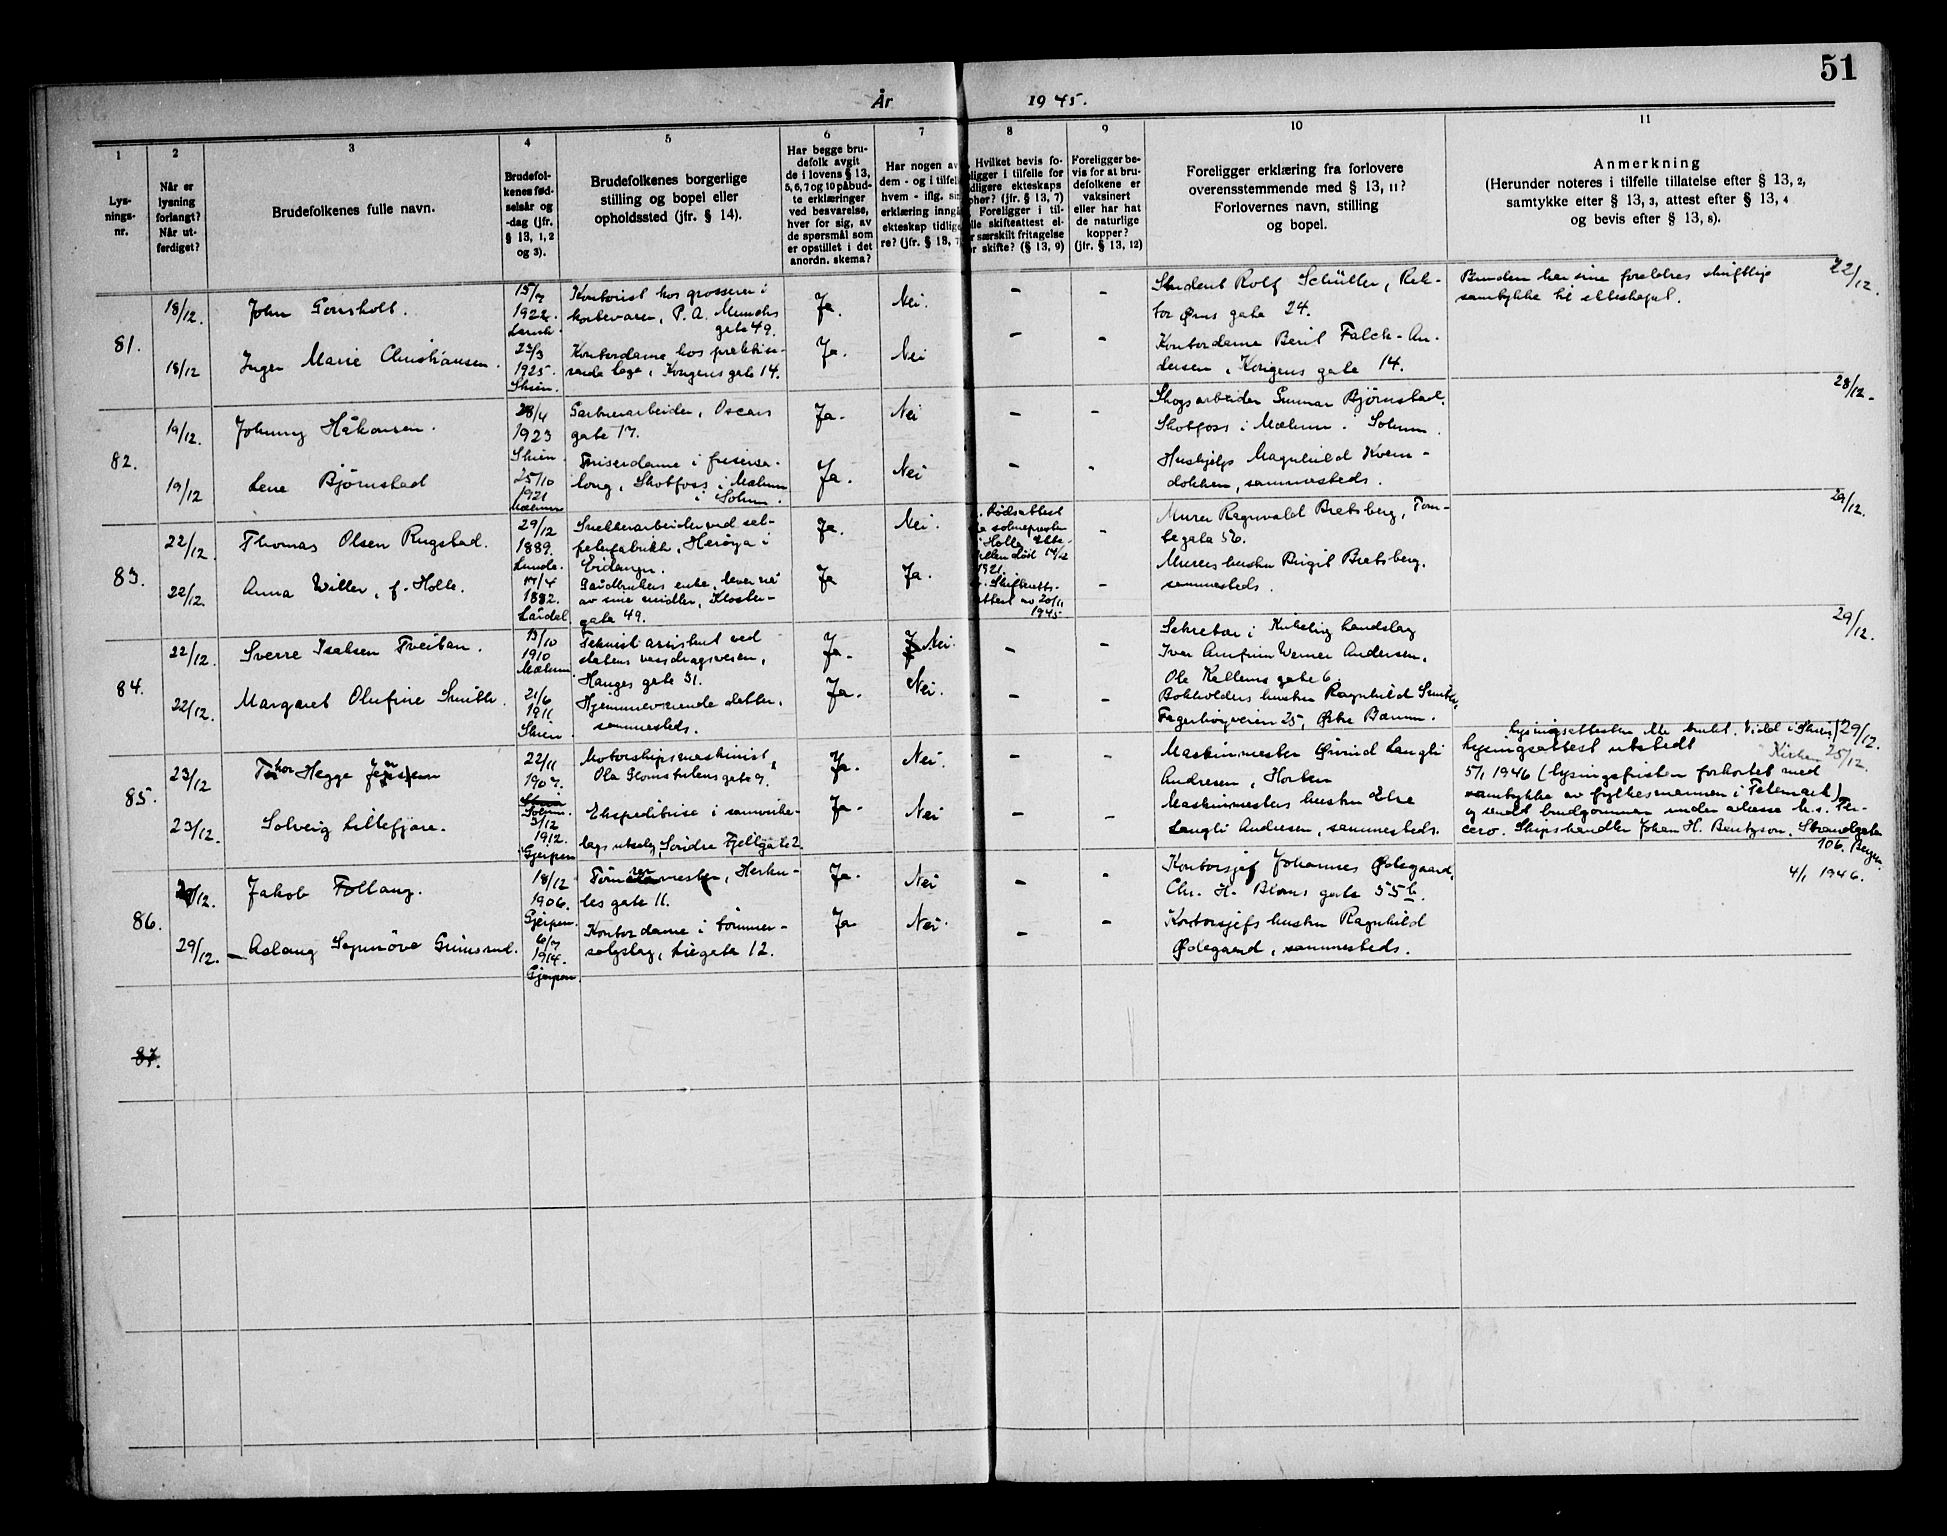 51
År 1945.
1
2
3
4
5
6
7
8
9
10
11
Lys-
nings-
nr.
Når er
lysning
forlangt?
Når ut-
ferdiget?
Brudefolkenes fulle navn.
Brudefol-
kenes fød-
selsår og
-dag (jfr.
§ 13, 1, 2
og 3).
Brudefolkenes borgerlige
stilling og bopel eller
opholdssted (jfr. § 14).
Har begge bru-
defolk avgit
de i lovens § 13,
5, 6, 7 og 10 påbud-
te erklæringer
ved besvarelse,
hver for sig, av
de spørsmål som
er opstillet i det
anordn. skema?
Har nogen av
dem - og i tilfelle
hvem - iflg. sin
erklæring inngå
ekteskap tidlige
re? (jfr. § 13, 7
Hvilket bevis fo-
ligger i tilfelle for
dligere ekteskaps
phør? (jfr. § 13, 7)
Foreligger i til-
lle skifteattest el-
r særskilt fritagelse
r skifte? (§ 13, 9)
Foreligger be-
vis for at bru-
defolkene er
vaksinert
eller har hat
de naturlige
kopper?
(jfr. § 13, 12)
Foreligger erklæring fra forlovere
overensstemmende med § 13, 11?
Forlovernes navn, stilling
og bopel.
Anmerkning
(Herunder noteres i tilfelle tillatelse efter § 13, 2,
samtykke etter § 13, 3, attest efter § 13, 4
og bevis efter § 13, 8).
81.
18/12.
John Gonsholt.
15/7
1922.
Kontorist hos grosserer i
kortevarer, P. A. Munchs
gate 49.
Ja.
Nei.
-
-
Student Rolf Schütter, Rek-
tor Ørns gate 24.
Bruden har sine foreldres skriftlige
samtykke til ekteskapet.
22/12.
18/12
Inger Marie Christiansen.
23/3
1925.
Skien.
Kontordame hos praktise-
rende lege, Kongens gate 14.
Ja.
Nei
-
-
Kontordame Beril Falck-An-
dersen, Kongens gate 14.
82.
19/12.
Johnny Håkonsen.
28/4
1923
Skien.
Garveriarbeider, Oscars
gate 17.
Ja.
Nei
-
-
Skogsarbeider Gunnar Bjørnstad,
Skotfoss i Mælum. Solum.
28/12.
19/12
Lene Bjørnstad
25/10
1921
Mælum
Friserdame i frisersa-
long, Skotfoss i Mælum
i Solum.
Ja.
Nei
-
-
Hushjelp Magnhild Kvern-
dokken, sammesteds.
83.
22/12.
Thomas Olsen Rugstad.
29/12
1889.
Lunde.
Snekkerarbeider ved sal-
peterfabrikk, Herøya i
Eidanger.
Ja.
Nei.
. Dødsattest
a soknepresten
i Holla. Ekte-
fellen død 14/12
1921.
. Skifteretts-
attest av 20/11
1945
-
Murer Ragnvald Bratsberg, Tom-
tegata 56.
29/12.
22/12.
Anna Willer, f. Holte.
17/4
1882.
Lårdal
Gårdbrukers enke, lever nå
av sine midler, Kloster-
gate 49.
Ja
Ja.
-
Murers hustru Birgit Bratsberg,
sammesteds.
84.
22/12.
Sverre Isaksen Tveitan.
13/10
1910
Mælum
Teknisk assistent ved
statens vassdragsvesen,
Hauges gate 31.
Ja.
Nei.
-
-
Sekretær i Kirkelig Landslag
Ivar Arnfinn Werner Andersen,
Ole Kallems gate 6.
29/12.
22/12.
Margaret Olufine Smith.
21/6
1911
Skien
Hjemmeværende datter,
sammesteds.
Ja.
Nei.
-
-
Bokholders hustru Ragnhild Smith,
Fagerhøyveien 25, Østre Bærum.
85.
23/12
Thor Hegge Jensen
22/11
1907.
Solum.
Motorskipsmaskinist,
Ole Glomstulens gate 7.
Ja.
Nei.
-
-
Maskinmester Øivind Langli
Andresen, Horten
Lysningsattesten ikke brukt. Viet i Skien
Kirken 25/12.
29/12.
Lysningsattest utstedt
5/1 1946 (lysningsfristen forkortet med
samtykke av fylkesmannen i Telemark)
og sendt brudgommen under adresse m.s. Ci-
cero. Skipshandler Johan H. Bentzson, Strandgaten
106. Bergen
23/12.
Solveig Lillefjære.
3/12
1912.
Gjerpen
Ekspeditrise i samvirke-
lags utsalg, Søndre Fjellgate 2.
Ja.
Nei
-
-
Maskinmesters hustru Else
Langli Andresen, sammesteds.
86.
29/12.
Jakob Follaug.
18/12
1906.
Gjerpen.
Tømmermester, Herku-
les gate 11.
Ja.
Nei
-
-
Kontorsjef Johannes Ødegaard,
Chr. H. Bloms gate 35 b.
4/1 1946.
29/12.
Aslaug Synnöve Grimsrud.
6/7
1914.
Gjerpen.
Kontordame i tømmer-
salgslag, Liegata 12.
Ja
Nei.
-
-
Kontorsjefs hustru Ragnhild
Ødegaard, sammesteds.
87.